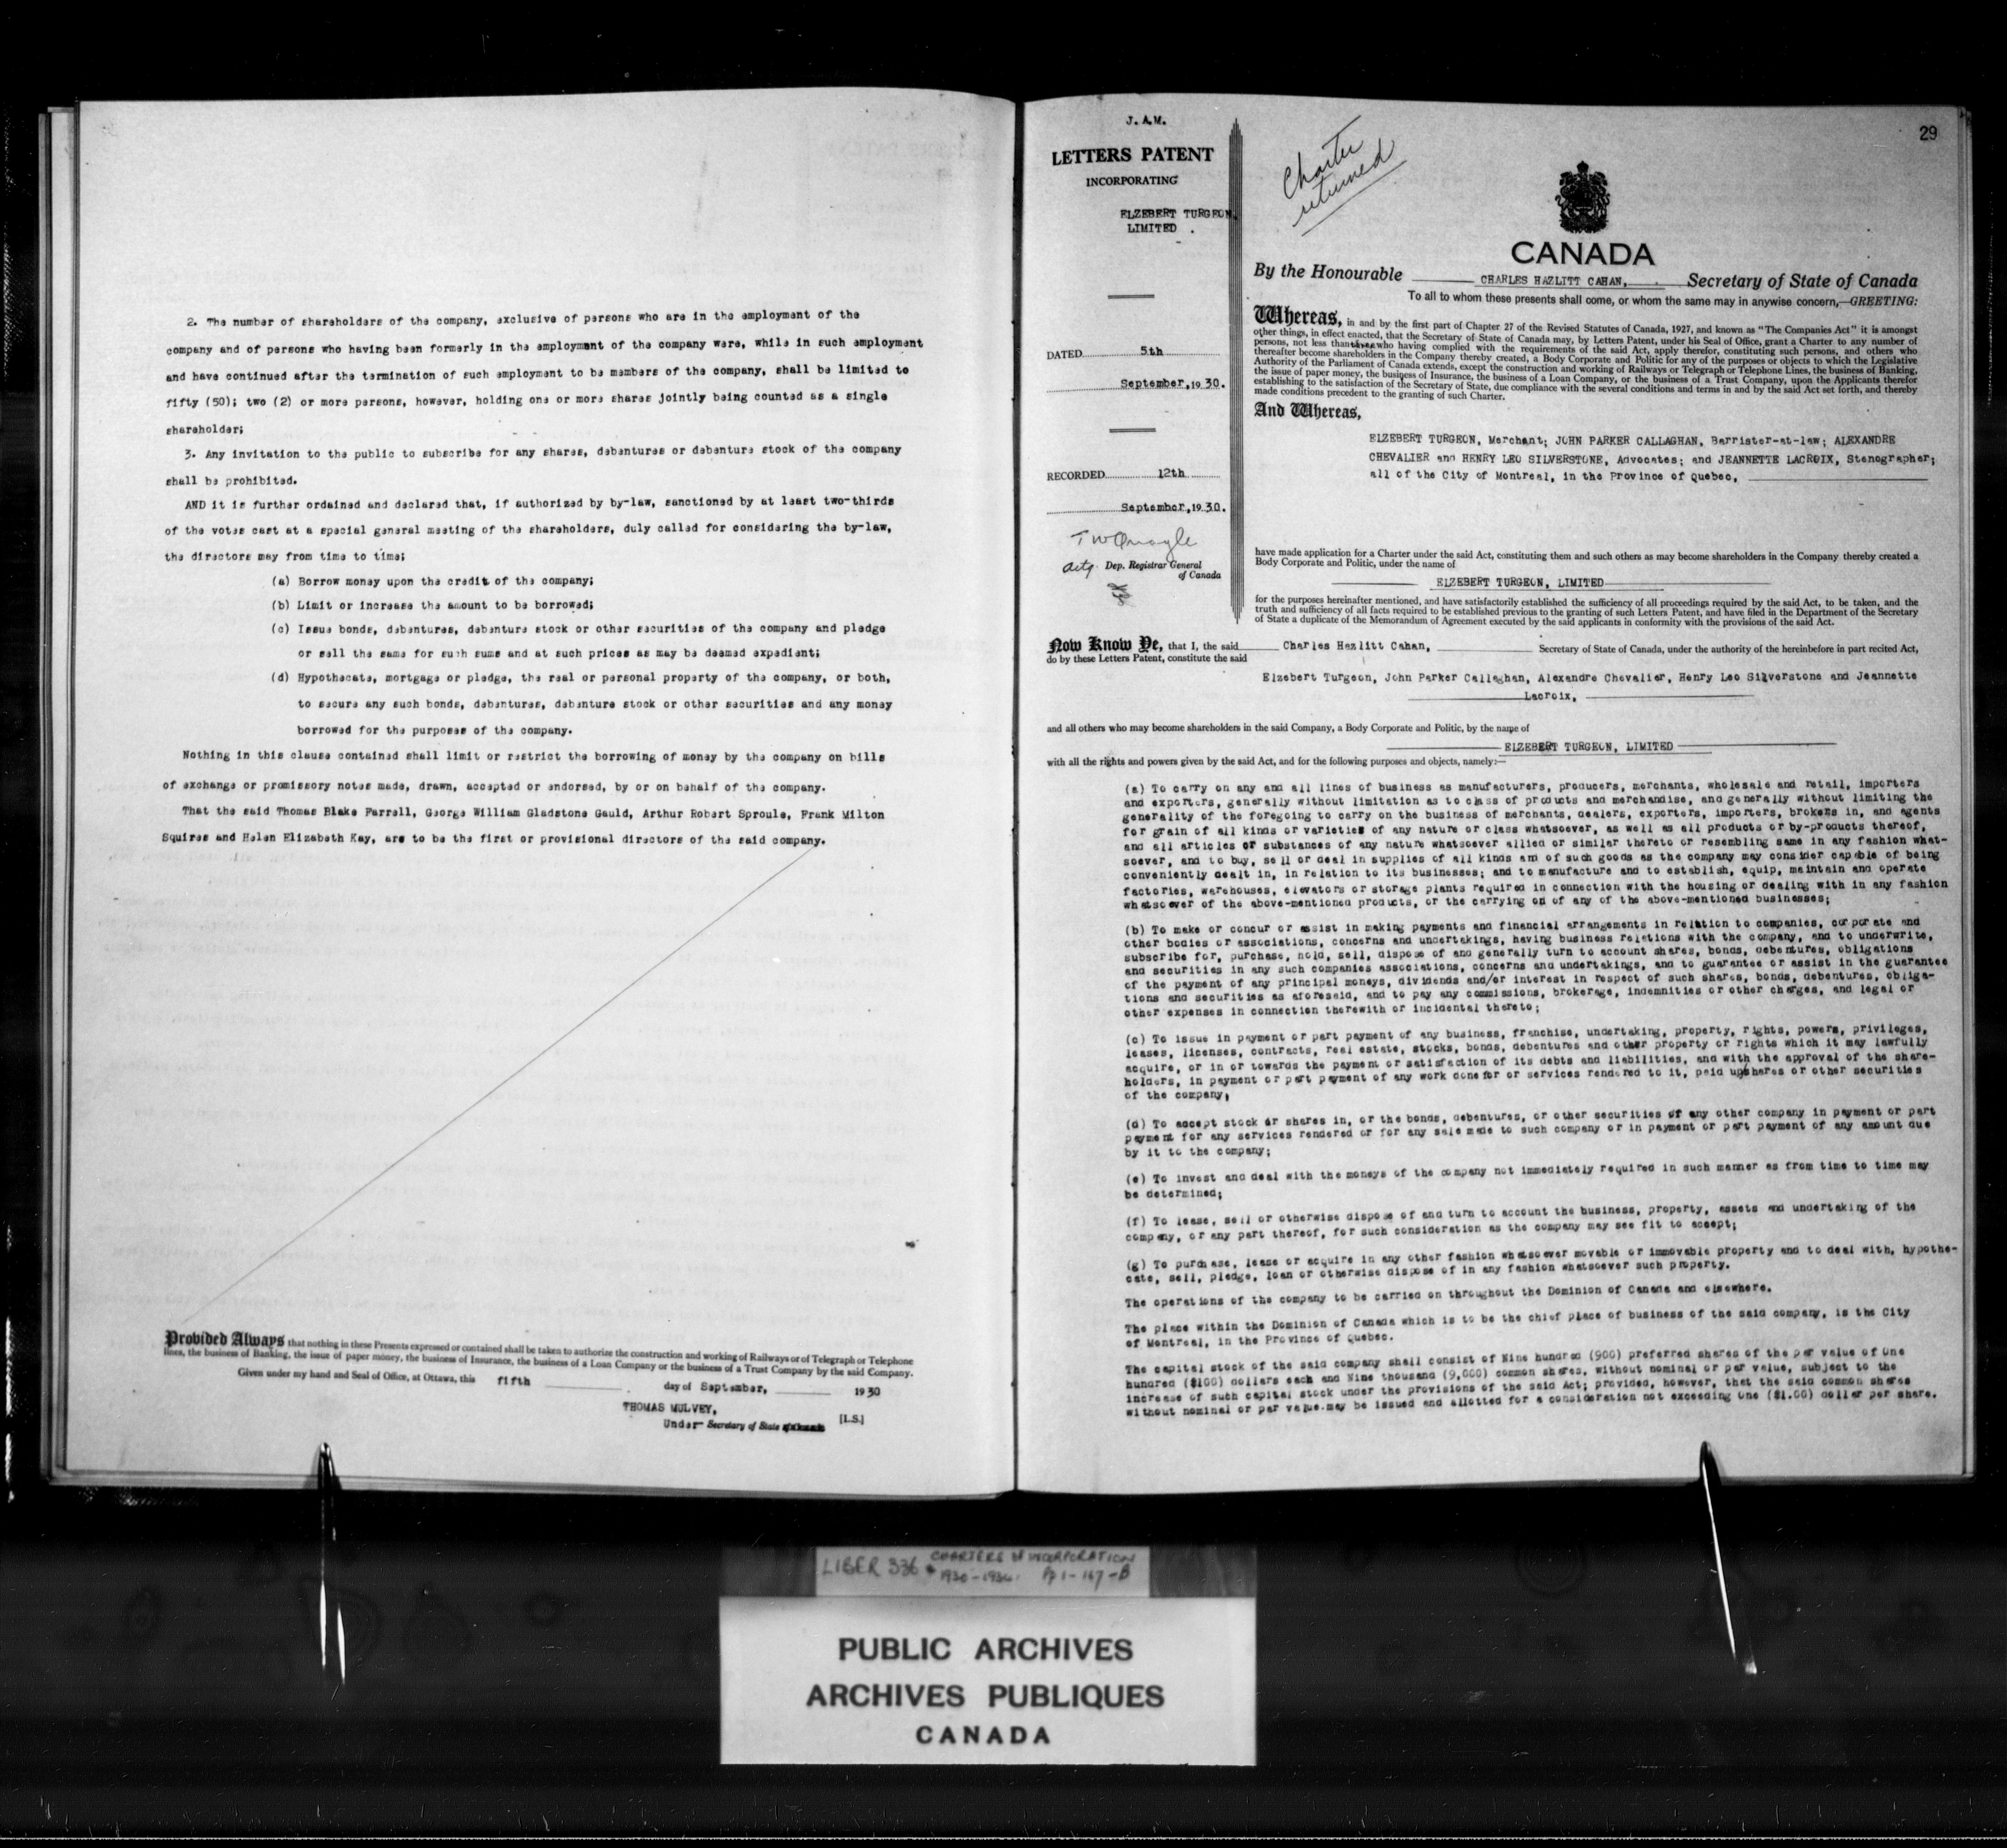 2. The number of shareholders of the company, exclusive of persons who are in the employment of the
company and of persons who having been formerly in the employment of the company were, while in such employment
and have continued after the termination of such employment to be members of the company, shall be limited to
fifty (50); two (2) or more persons, however, holding one or more shares jointly being counted as a single
shareholder;
3. Any invitation to the public to subscribe for any shares, debentures or debenture stock of the company
shall be prohibited.
AND it is further ordained and declared that, if authorized by by-law, sanctioned by at least two-thirds
of the votes cast at a special general meeting of the shareholders, duly called for considering the by-law,
the directors may from time to time;
(a) Borrow money upon the credit of the company;
(b) Limit or increase the amount to be borrowed;
(c) Issue bonds, debentures, debenture stock or other securities of the company and pledge
or sell the same for such sums and at such prices as may be deemed expedient;
(d) Hypothecate, mortgage or pledge, the real or personal property of the company, or both,
to secure any such bonds, debentures, debenture stock or other securities and any money
borrowed for the purposes of the company.
Nothing in this clause contained shall limit or restrict the borrowing of money by the company on bills
of exchange or promissory notes made, drawn, accepted or endorsed, by or on behalf of the company.
That the said Thomas Blake Farrell, George William Gladstone Gauld, Arthur Robert Sproule, Frank Milton
Squires and Helen Elizabeth Kay, are to be the first or provisional directors of the said company.
Provided Always that nothing in these Presents expressed or contained shall be taken to authorize the construction and working of Railways or of Telegraph or Telephone
lines, the business of Banking, the issue of paper money, the business of Insurance, the business of a Loan Company or the business of a Trust Company by the said Company.
Given under my hand and Seal of Office, at Ottawa, this fifth day of September, 1930
THOMAS MULVEY,
Under Secretary of State [L.S.]
29
J. A.M.
LETTERS PATENT
INCORPORATING
ELZEBERT TURGEON,
LIMITED .
DATED 5th
September, 1930.
RECORDED 12th
September, 1930.
T W Quayle
actg. Dep. Registrar General
of Canada
Charter
returned
CANADA
By the Honourable CHARLES HAZLITT CAHAN, Secretary of State of Canada
To all to whom these presents shall come, or whom the same may in anywise concern,—GREETING:
Whereas, in and by the first part of Chapter 27 of the Revised Statutes of Canada, 1927, and known as "The Companies Act" it is amongst
other things, in effect enacted, that the Secretary of State of Canada may, by Letters Patent, under his Seal of Office, grant a Charter to any number of
persons, not less than three who having complied with the requirements of the said Act, apply therefor, constituting such persons, and others who
thereafter become shareholders in the Company thereby created, a Body Corporate and Politic for any of the purposes or objects to which the Legislative
Authority of the Parliament of Canada extends, except the construction and working of Railways or Telegraph or Telephone Lines, the business of Banking,
the issue of paper money, the business of Insurance, the business of a Loan Company, or the business of a Trust Company, upon the Applicants therefor
establishing to the satisfaction of the Secretary of State, due compliance with the several conditions and terms in and by the said Act set forth, and thereby
made conditions precedent to the granting of such Charter.
And Whereas,
ELZEBERT TURGEON, Merchant; JOHN PARKER CALLAGHAN, Barrister-at-law; ALEXANDRE
CHEVALIER and HENRY LEO SILVERSTONE, Advocates; and JEANNETTE LACROIX, Stenographer;
all of the City of Montreal, in the Province of Quebec,
have made application for a Charter under the said Act, constituting them and such others as may become shareholders in the Company thereby created a
Body Corporate and Politic, under the name of
ELZEBERT TURGEON, LIMITED
for the purposes hereinafter mentioned, and have satisfactorily established the sufficiency of all proceedings required by the said Act, to be taken, and the
truth and sufficiency of all facts required to be established previous to the granting of such Letters Patent, and have filed in the Department of the Secretary
of State a duplicate of the Memorandum of Agreement executed by the said applicants in conformity with the provisions of the said Act.
Now Know Ye, that I, the said Charles Hazlitt Cahan, Secretary of State of Canada, under the authority of the hereinbefore in part recited Act,
do by these Letters Patent, constitute the said
Elzebert Turgeon, John Parker Callaghan, Alexandre Chevalier, Henry Leo Silverstone and Jeannette
Lacroix,
and all others who may become shareholders in the said Company, a Body Corporate and Politic, by the name of
ELZEBERT TURGEON, LIMITED
with all the rights and powers given by the said Act, and for the following purposes and objects, namely:—
(a) To carry on any and all lines of business as manufacturers, producers, merchants, wholesale and retail, importers
and exporters, generally without limitation as to class of products and merchandise, and generally without limiting the
generality of the foregoing to carry on the business of merchants, dealers, exporters, importers, brokers in, and agents
for grain of all kinds or varieties of any nature or class whatsoever, as well as all products or by-products thereof,
and all articles or substances of any nature whatsoever allied or similar thereto or resembling same in any fashion what-
soever, and to buy, sell or deal in supplies of all kinds and of such goods as the company may consider capable of being
conveniently dealt in, in relation to its businesses; and to manufacture and to establish, equip, maintain and operate
factories, warehouses, elevators or storage plants required in connection with the housing or dealing with in any fashion
whatsoever of the above-mentioned products, or the carrying on of any of the above-mentioned businesses;
(b) To make or concur or assist in making payments and financial arrangements in relation to companies, corporate and
other bodies or associations, concerns and undertakings, having business relations with the company, and to underwrite,
subscribe for, purchase, hold, sell, dispose of and generally turn to account shares, bonds, debentures, obligations
and securities in any such companies associations, concerns and undertakings, and to guarantee or assist in the guarantee
of the payment of any principal moneys, dividends and/or interest in respect of such shares, bonds, debentures, obliga-
tions and securities as aforesaid, and to pay any commissions, brokerage, indemnities or other charges, and legal or
other expenses in connection therewith or incidental thereto;
(c) To issue in payment or part payment of any business, franchise, undertaking, property, rights, powers, privileges,
leases, licenses, contracts, real estate, stocks, bonds, debentures and other property or rights which it may lawfully
acquire, or in or towards the payment or satisfaction of its debts and liabilities, and with the approval of the share-
holders, in payment or part payment of any work done for or services rendered to it, paid up shares or other securities
of the company;
(d) To accept stock or shares in, or the bonds, debentures, or other securities of any other company in payment or part
payment for any services rendered or for any sale made to such company or in payment or part payment of any amount due
by it to the company;
(e) To invest and deal with the moneys of the company not immediately required in such manner as from time to time may
be determined;
(f) To lease, sell or otherwise dispose of and turn to account the business, property, assets and undertaking of the
company, or any part thereof, for such consideration as the company may see fit to accept;
(g) To purchase, lease or acquire in any other fashion whatsoever movable or immovable property and to deal with, hypothe-
cate, sell, pledge, loan or otherwise dispose of in any fashion whatsoever such property.
The operations of the company to be carried on throughout the Dominion of Canada and elsewhere.
The place within the Dominion of Canada which is to be the chief place of business of the said company, is the City
of Montreal, in the Province of Quebec.
The capital stock of the said company shall consist of Nine hundred (900) preferred shares of the par value of One
hundred ($100) dollars each and Nine thousand (9,000) common shares, without nominal or par value, subject to the
increase of such capital stock under the provisions of the said Act; provided, however, that the said common shares
without nominal or par value may be issued and allotted for a consideration not exceeding One ($1.00) dollar per share.
LIBER 336 CHARTERS of INCORPORATION
1930-1934. Pg 1-167-B
PUBLIC ARCHIVES
ARCHIVES PUBLIQUES
CANADA